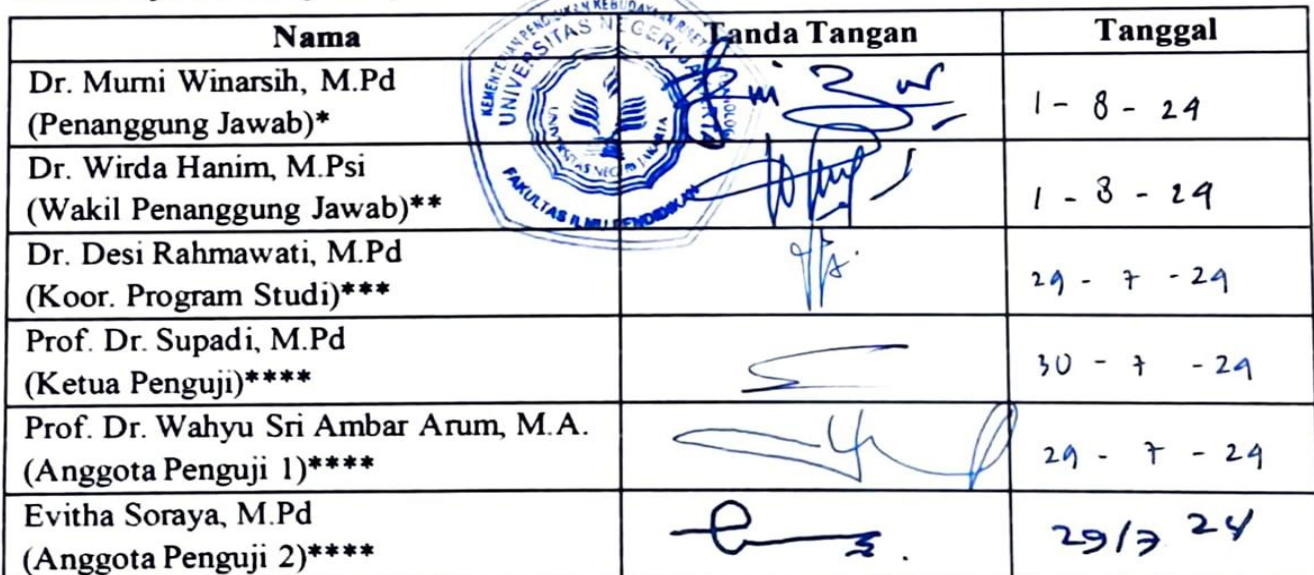 Nama Tanda Tangan Tanggal
Dr. Murni Winarsih, M.Pd
(Penanggung Jawab)* 1 - 8 - 24
Dr. Wirda Hanim, M.Psi
(Wakil Penanggung Jawab)** 1 - 8 - 24
Dr. Desi Rahmawati, M.Pd
(Koor. Program Studi)*** 29 - 7 - 24
Prof. Dr. Supadi, M.Pd
(Ketua Penguji)**** 30 - 7 - 24
Prof. Dr. Wahyu Sri Ambar Arum, M.A.
(Anggota Penguji 1)**** 29 - 7 - 24
Evitha Soraya, M.Pd
(Anggota Penguji 2)**** 29/7 24
UNIVERSITAS NEGERI JAKARTA
UNIVERSITAS NEGERI JAKARTA
FAKULTAS ILMU PENDIDIKAN